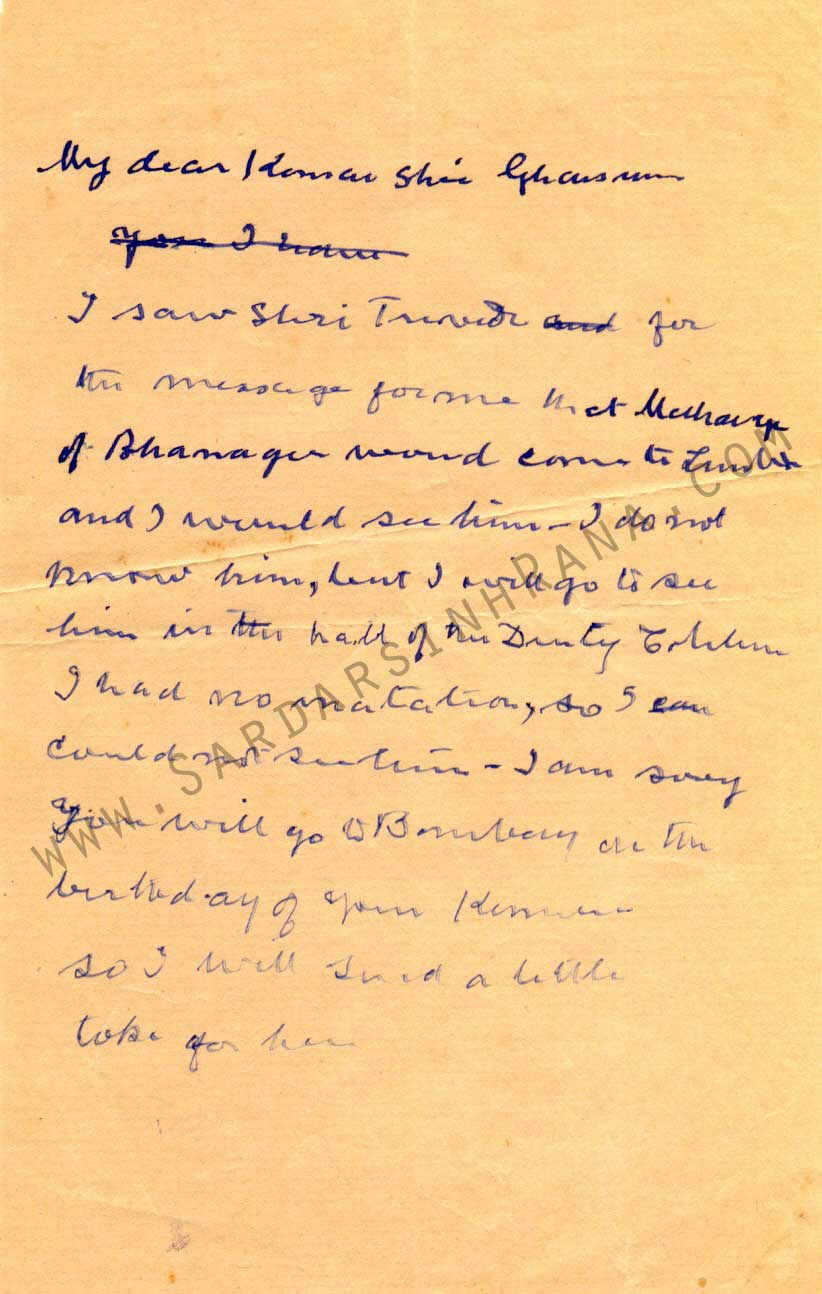 My dear Kumar Shri
you I have
I saw Shri Trivedi and for
the message for me that Maharaja
of Bhanager would come to
and I would see him - I do not
know him, but I will go to see
him in the hall of the
I had no invitation, so I can
could not see him - I am sorry
You will go to Bombay on the
birthday of your
so I will send a little
toke for her
WWW.SARDARSINHRANA.COM